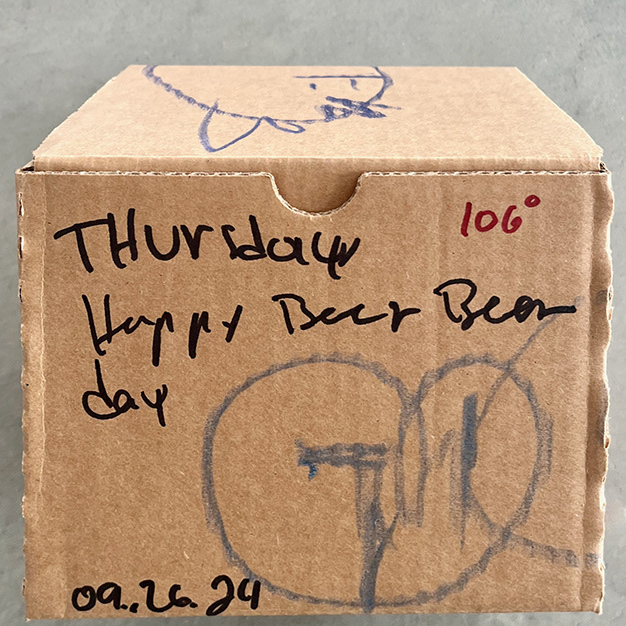 THursday
106°
Happy Beer Bear
day
09.26.24